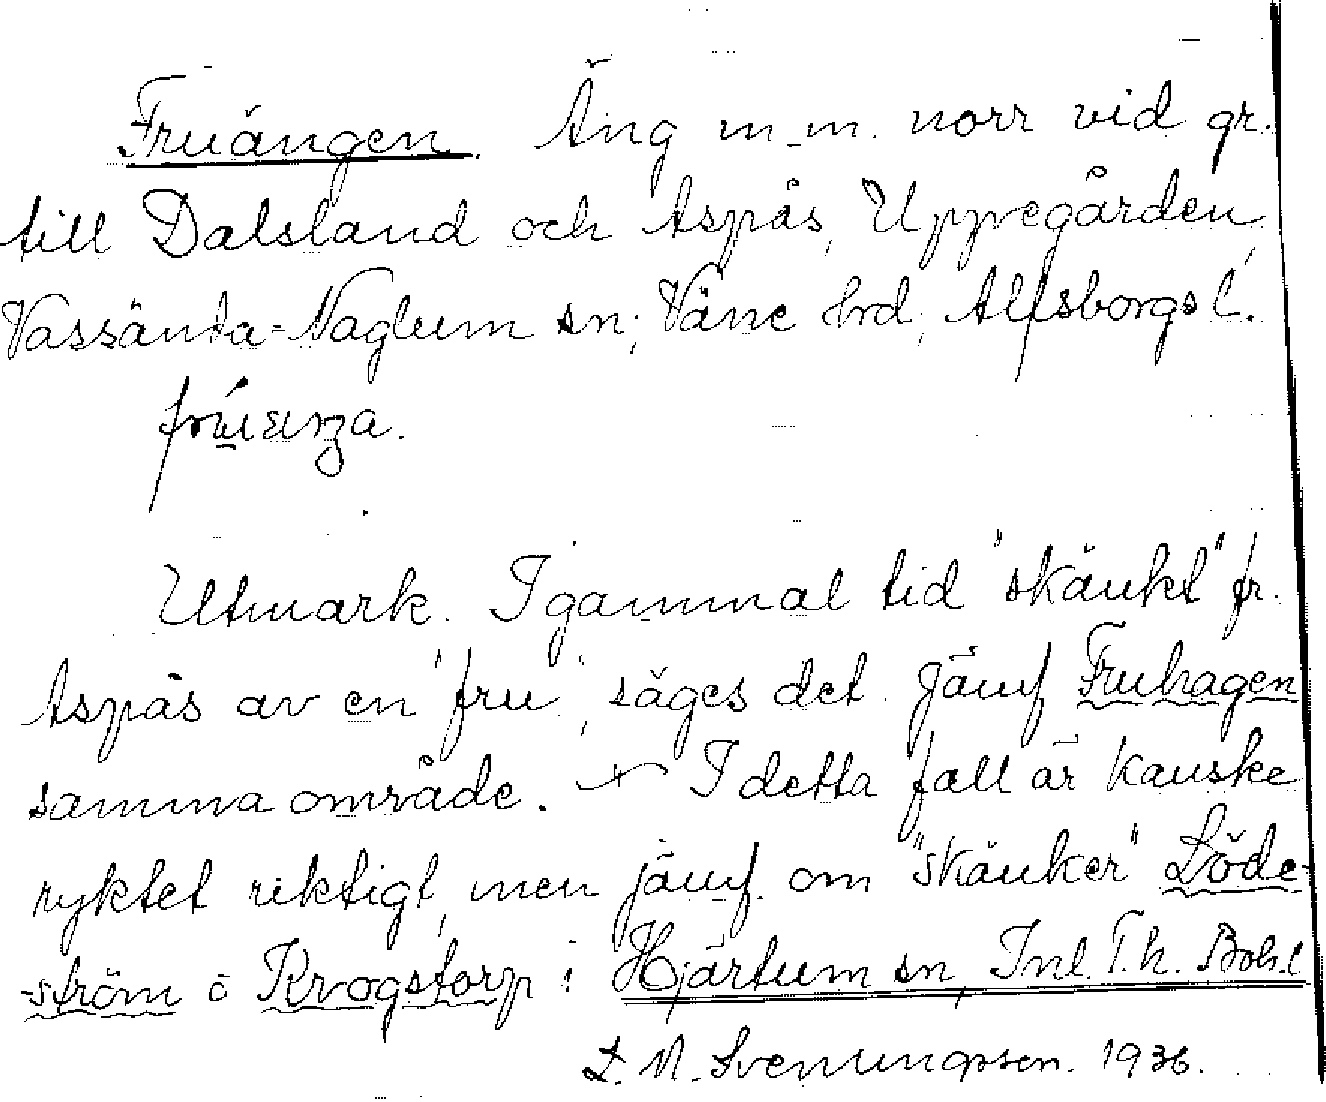 Fruängen. Äng m.m. norr vid gr.
till Dalsland och Aspås, Uppegården,
Vassända-Naglum sn; Väne hrd, Älfsborgs l.

Utmark. I gammal tid "skänkt" fr.
Aspås av en "fru", säges det. Jämf Fruhagen
samma område. I detta fall är kanske
ryktet riktigt, men jämf. om "skänker" Löde-
ström o Krogstorp i Hjärtum sn, Inl. T. h. Boh. l
L. M. Svenungsson. 1936.